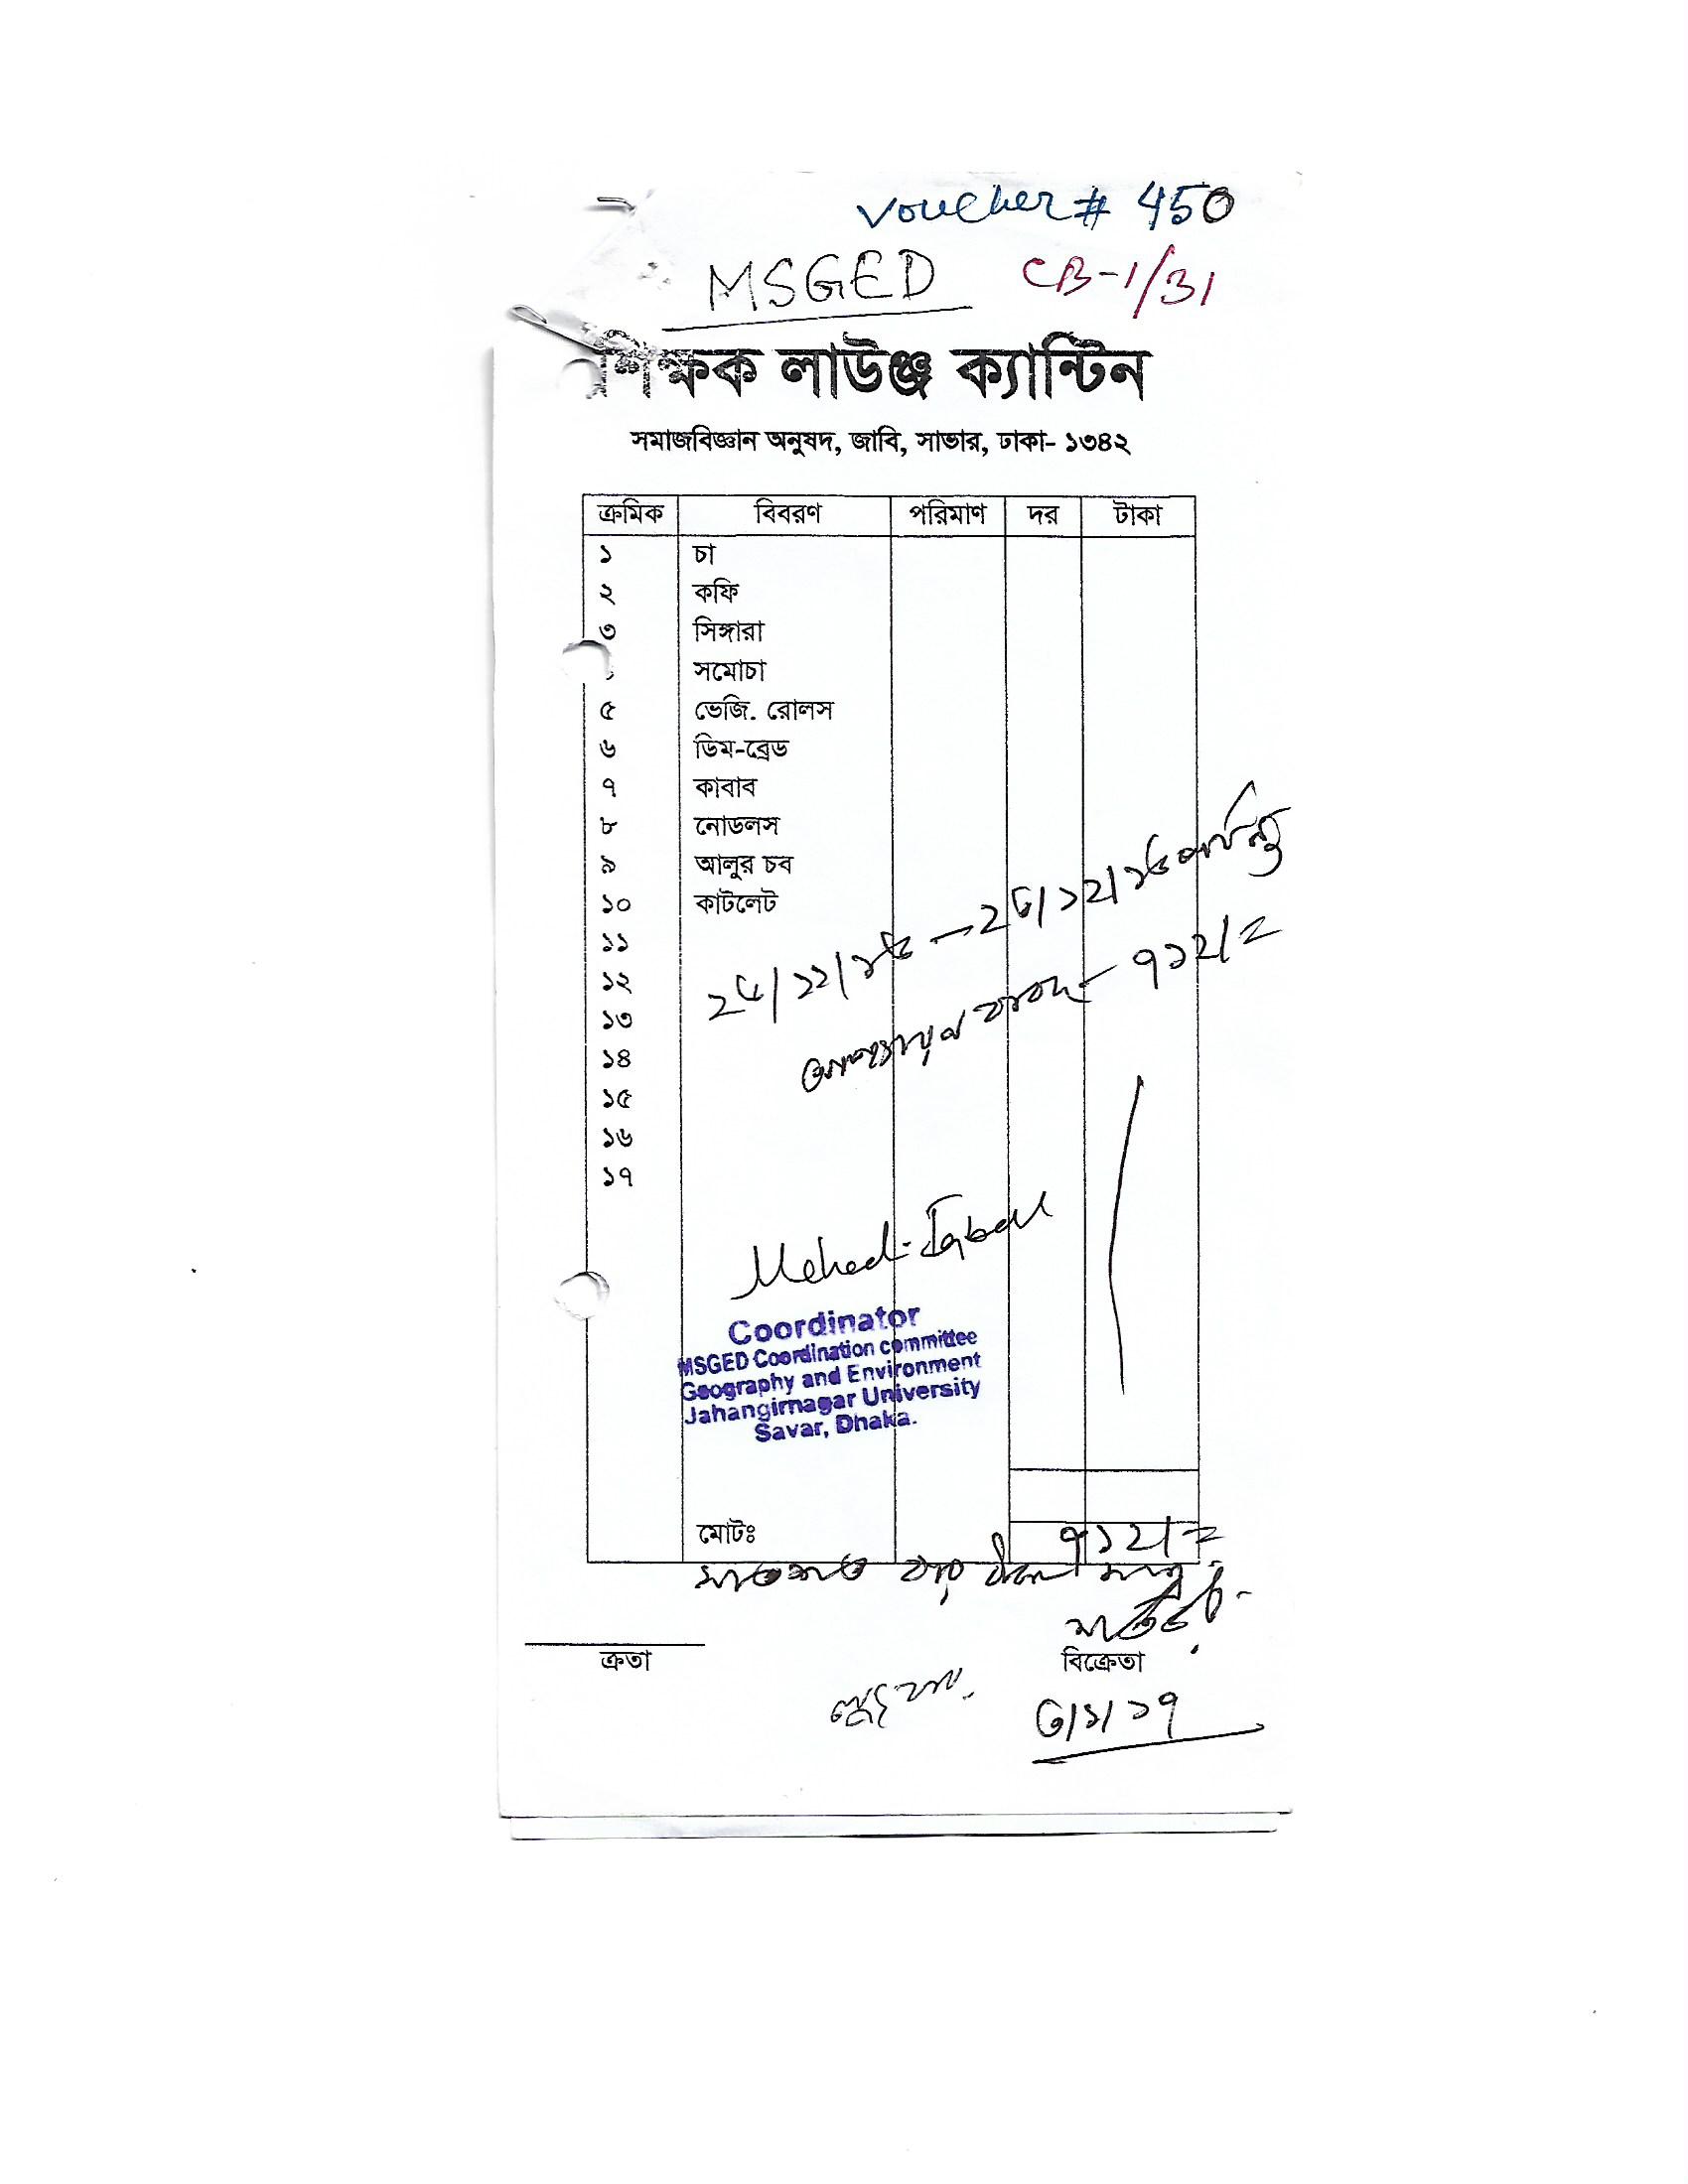 Voucher # 450
MSGED CB-1/31
শিক্ষক লাউঞ্জ ক্যান্টিন
সমাজবিজ্ঞান অনুষদ, জাবি, সাভার, ঢাকা- ১৩৪২
ক্রমিক বিবরণ পরিমাণ দর টাকা
১ চা
২ কফি
৩ সিঙ্গারা
সমোচা
৫ ভেজি. রোলস
৬ ডিম-ব্রেড
৭ কাবাব
৮ নোডলস
৯ আলুর চব
১০ কাটলেট
১১
১২
১৩
১৪
১৫
১৬
১৭
পর্যন্ত
আপ্যায়ন বাবদ - ৭১২/=
Mehedi Iqbal
Coordinator
MSGED Coordination committee
Geography and Environment
Jahangirnagar University
Savar, Dhaka.
মোটঃ ৭১২/=
সাতশত বার টাকা মাত্র
ক্রতা বিক্রেতা
৩/১/১৭